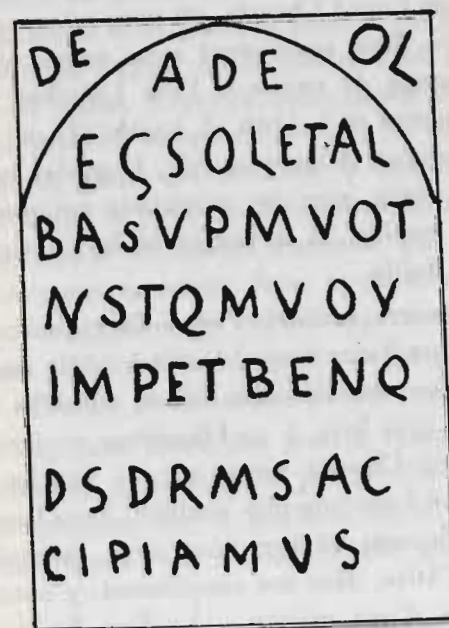 DE OL
ADE
EÇSOLETAL
BASVPMVOT
NSTQMVOV
IMPETBENQ
DSDRMSAC
CIPIAMVS